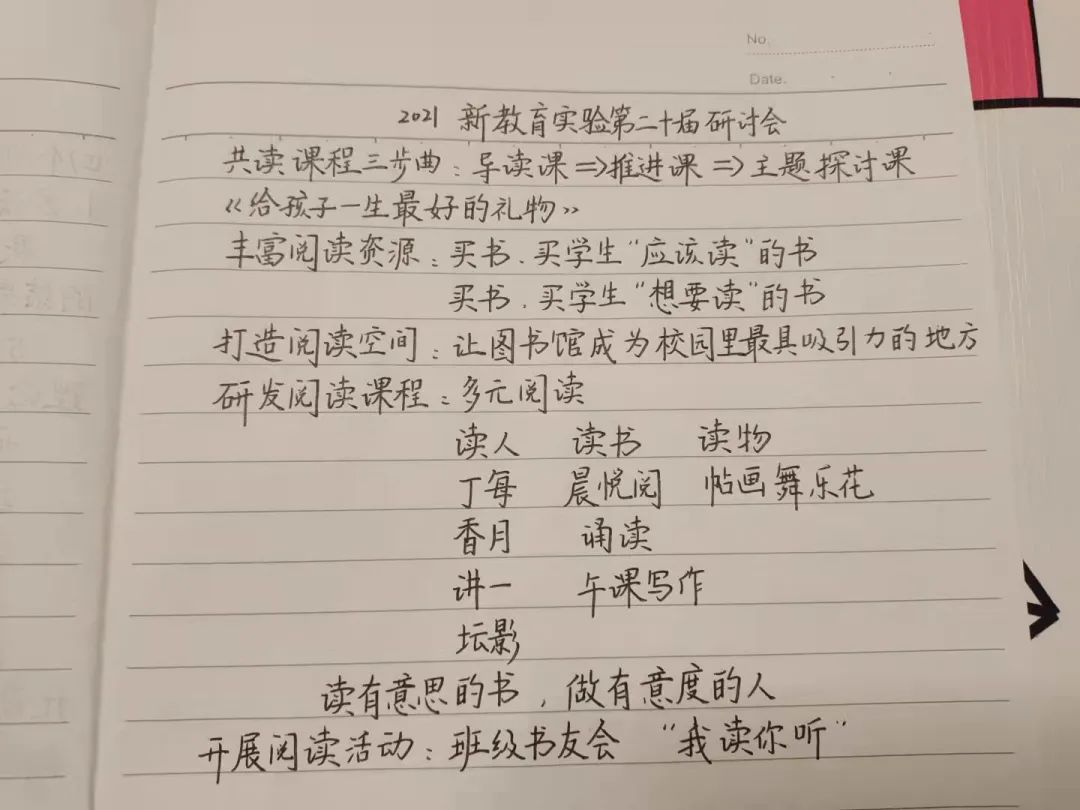 No.
Date.
2021 新教育实验第二十届研讨会
共读课程三步曲：导读课=>推进课=>主题探讨课
《给孩子一生最好的礼物》
丰富阅读资源：买书、买学生“应该读”的书
买书、买学生“想要读”的书
打造阅读空间：让图书馆成为校园里最具吸引力的地方
研发阅读课程：多元阅读
读人 读书 读物
丁每 晨悦阅 帖画舞乐花
香月 诵读
讲一 午课写作
坛影
读有意思的书，做有意度的人
开展阅读活动：班级书友会 “我读你听”